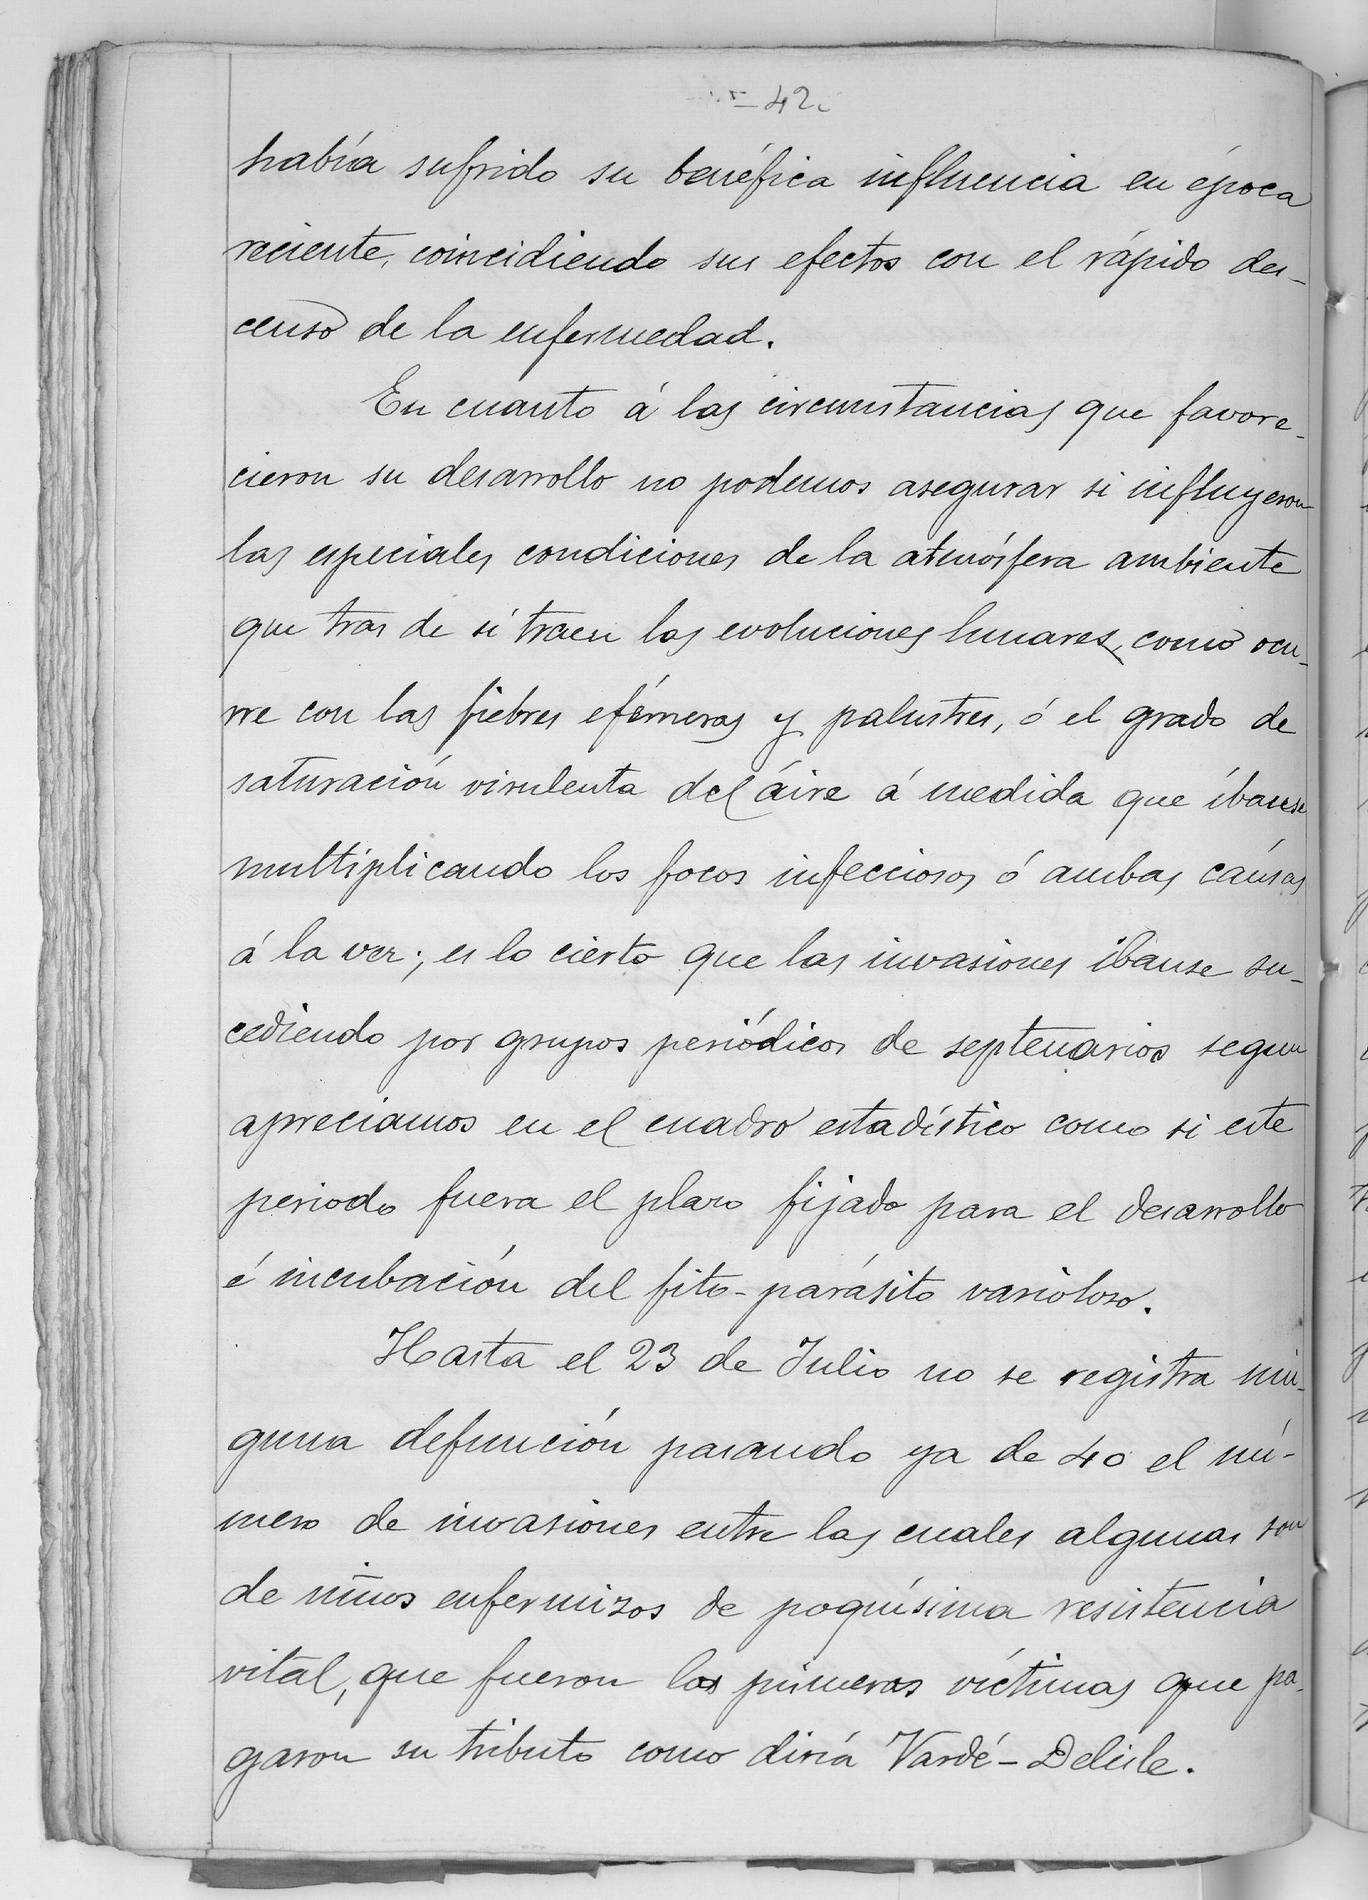 - 42.
había sufrido su benéfica influencia en época
reciente, coincidiendo sus efectos con el rápido des-
censo de la enfermedad.
En cuanto á las circunstancias que favore-
cieron su desarrollo no podemos asegurar si influyeron
las especiales condiciones de la atmósfera ambiente
que tras de sí traen las evoluciones lunares, como ocu-
rre con las fiebres efémeras y palustres, ó el grado de
saturación virulenta del áire á medida que íbanse
multiplicando los focos infecciosos ó ambas cáusas
á la vez; es lo cierto que las invasiones ibanse su-
cediendo por grupos periódicos de septenarios segun
apreciamos en el cuadro estadístico como si este
periodo fuera el plazo fijado para el desarrollo
é incubación del fito-parásito varioloso.
Hasta el 23 de Julio no se registra nin-
guna defunción pasando ya de 40 el nú-
mero de invasiones entre las cuales algunas son
de niños enfermizos de poquísima resistencia
vital, que fueron las primeras víctimas que pa-
garon su tributo como diría Vardé-Delisle.